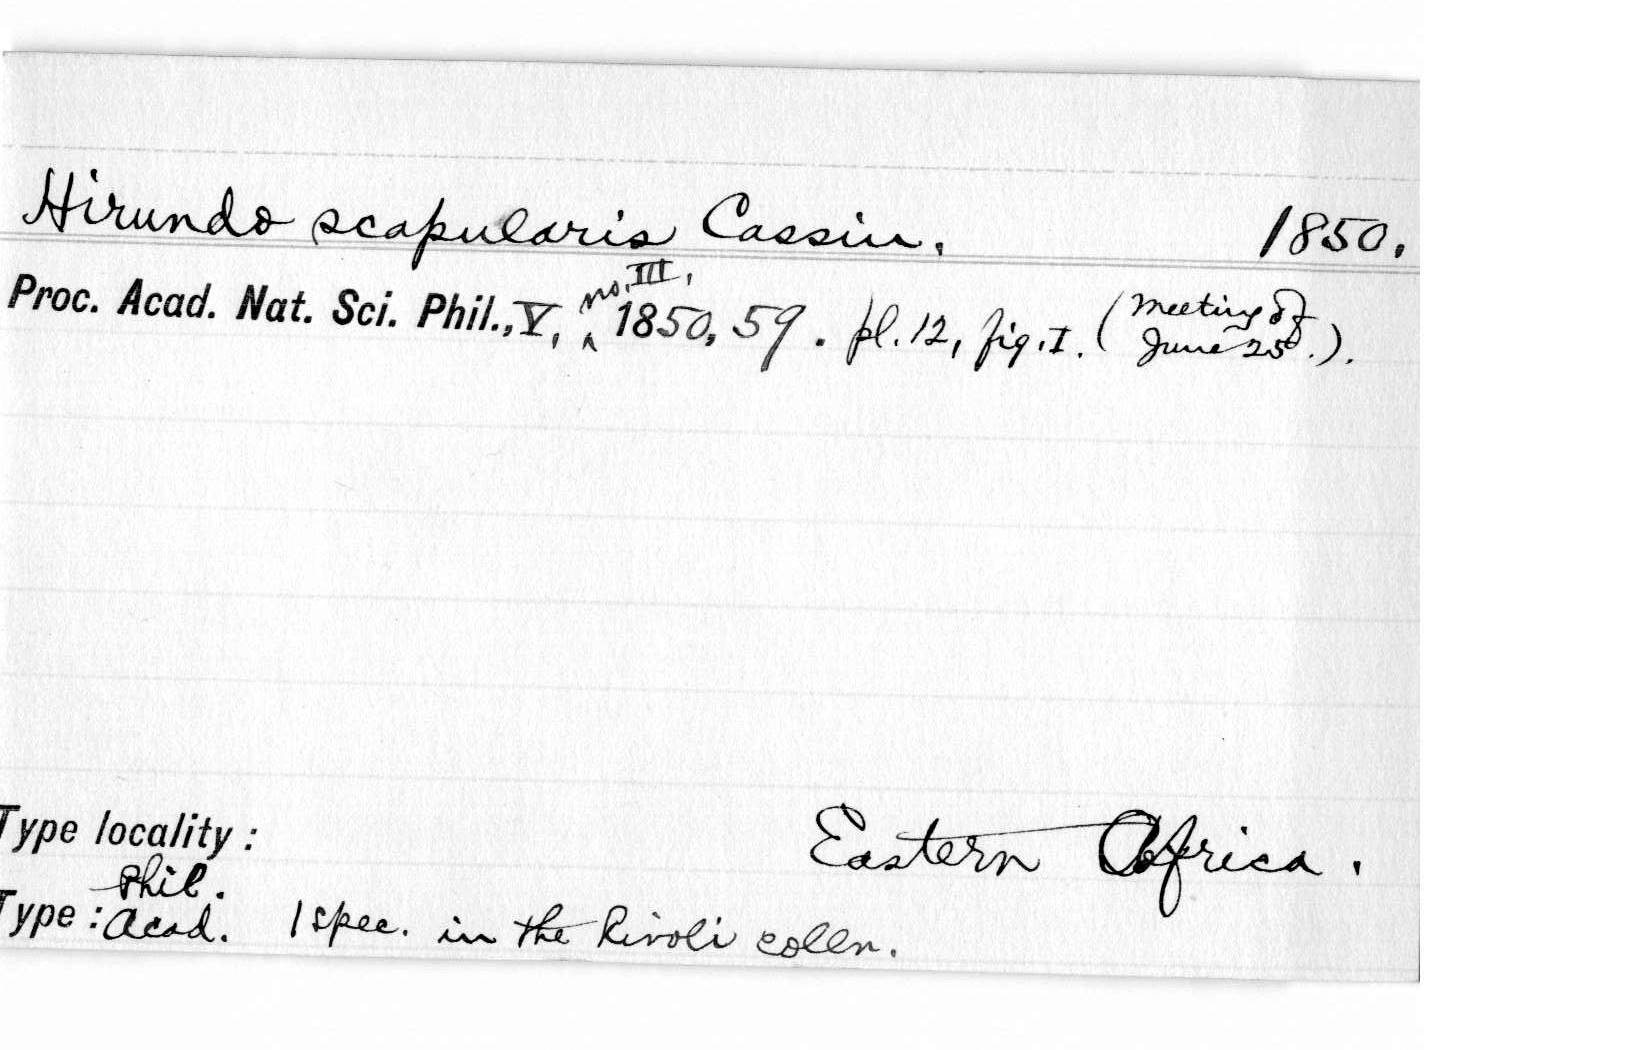 Hirundo scapularis Cassin. 1850.
Proc. Acad. Nat. Sci. Phil., V, no. III, 1850, 59. pl. 12, fig. I. (Meeting of June 25.).
Type locality: Eastern Africa.
Phil.
Type: Acad. 1 spec. in the Rivoli colln.